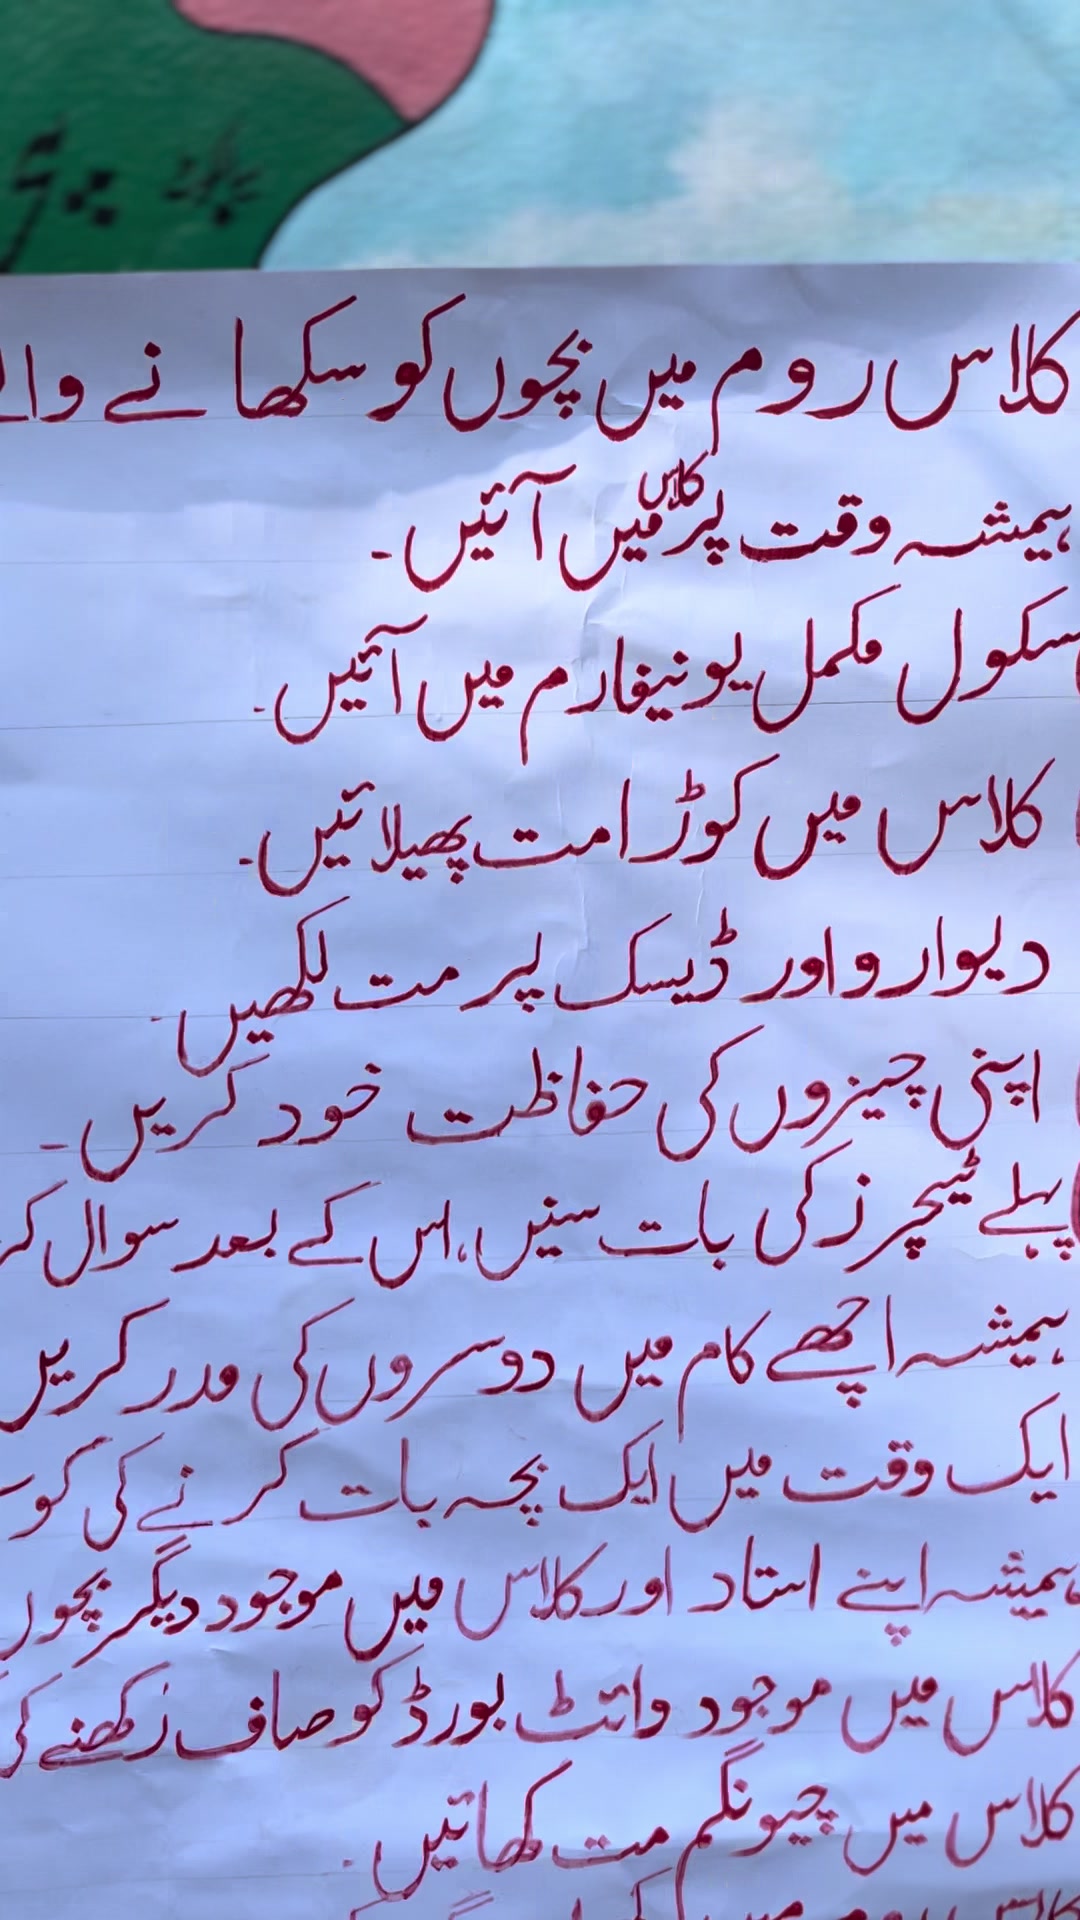 کلاس روم میں بچوں کو سکھانے
ہمیشہ وقت پر کلاس میں آئیں۔
سکول مکمل یونیفارم میں آئیں۔
کلاس میں کوڑا مت پھیلائیں۔
دیوارو اور ڈیسک پر مت لکھیں۔
اپنی چیزوں کی حفاظت خود کریں۔
پہلے ٹیچرز کی بات سنیں، اس کے بعد سوال
ہمیشہ اچھے کام میں دوسروں کی مدد کریں
ایک وقت میں ایک بچہ بات کرنے کی
ہمیشہ اپنے استاد اور کلاس میں موجود دیگر بچوں
کلاس میں موجود وائٹ بورڈ کو صاف رکھنے کی
کلاس میں چیونگم مت کھائیں۔